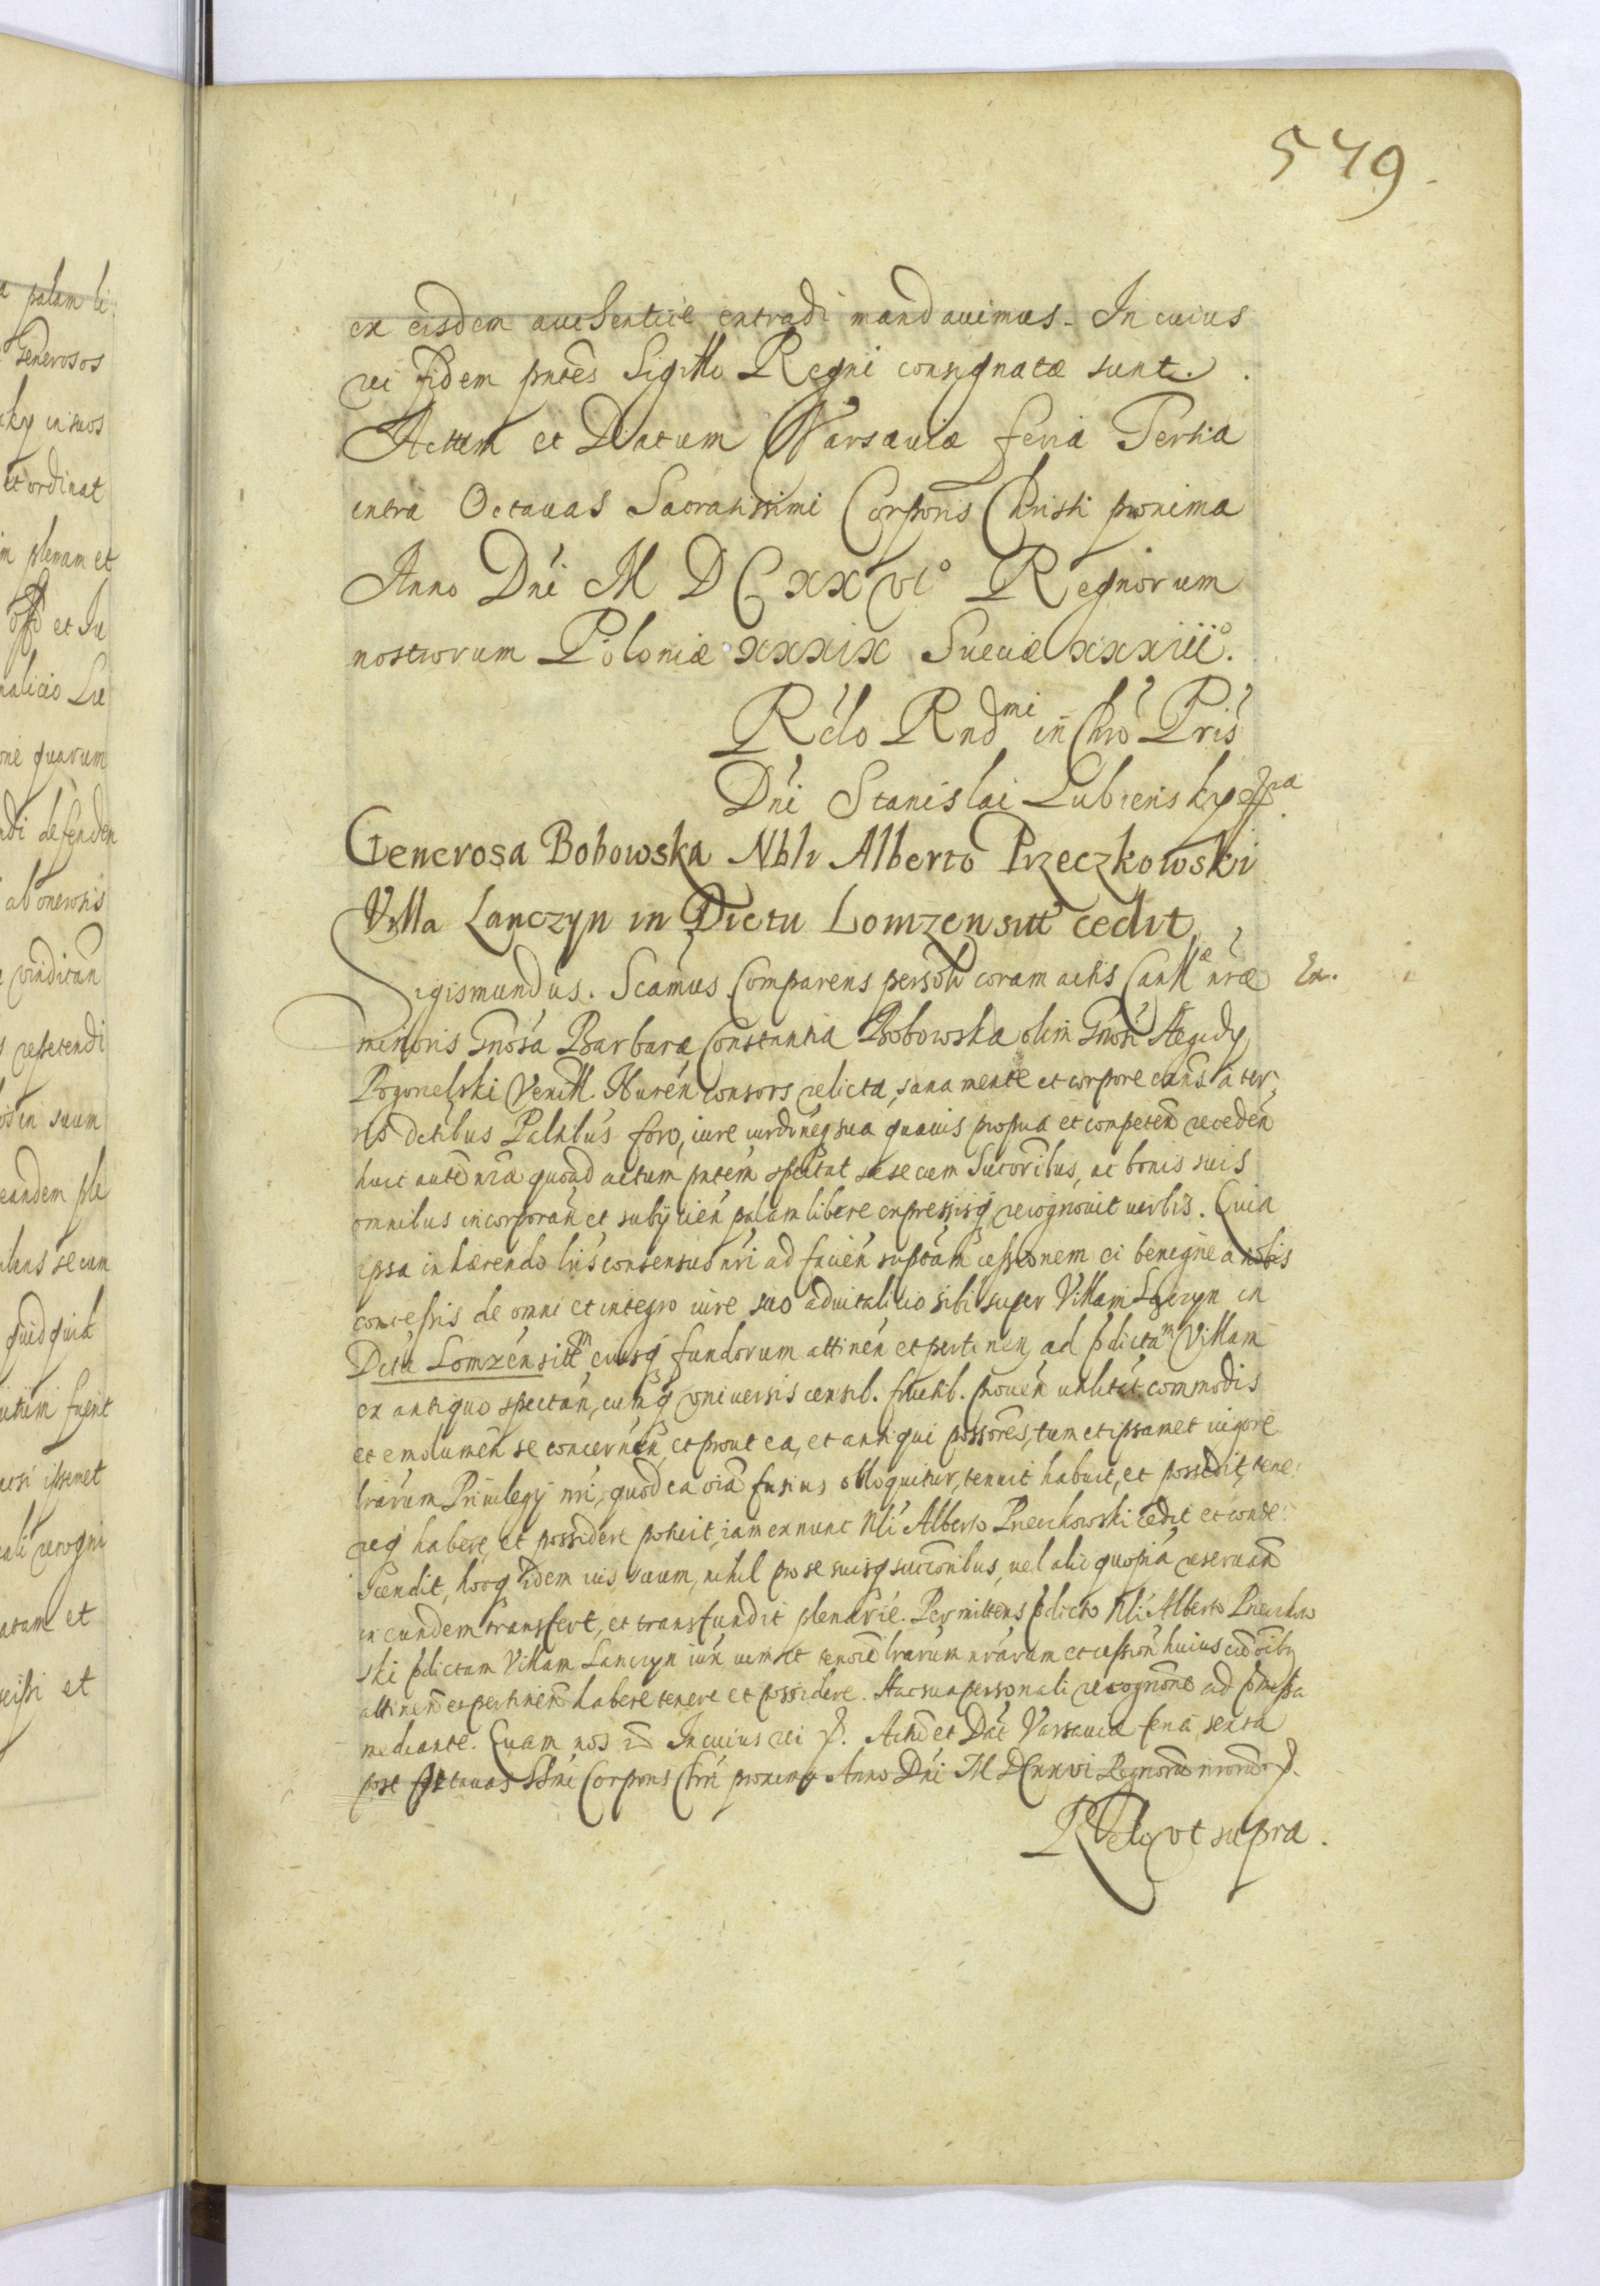 549
ex eisdem authentice extradi mandavimus. In cuius
rei fidem pntes Sigillo Regni consignatæ sunt.
Actum et Datum Varsaviæ feria Tertia
intra Octavas Sacratissimi Corporis Christi proxima
Anno Dni M D C XX VI° Regnorum
nostrorum Poloniæ XXXIX Sueciæ XXXIII°.
Relo Rndmi in Chro Pris
Dni Stanislai Lubienski
Generosa Bobowska Nbli Alberto Przeczkowski
Villa Lanczyn in Dictu Lomzen sitt cedit
Sigismundus. Scamus Comparens personlr coram actis Cancllæ nræ Ex.
minoris Gnosa Barbara Constantia Bobowska olim Gnosi Aegidy
Pogorzelski consors relicta, sana mente et corpore exns a ter
ris foro, iure iurdneq sua quavis propria et competen receden
huic aute nra quoad actum pntem spectat sese cum Succoribus, ac bonis suis
omnibus incorporan et subijcien palam libere expressisq recognovit verbis. Quia
ipsa inhærendo lris consensus nri ad facien cessionem ei benigne a nobis
concessis de omni et integro iure suo advitalicio sibi super Villam Lączyn in
Dctu Lomzen sittm fundorum attinen et pertinen, ad pdictam Villam
ex antiquo spectan, cumq universis censib. fructib. proven utilitat commodis
et emolumen se concernen, et prout ea, et antiqui possores, tum et ipsamet vigore
lrarum Privilegij nri, quod ea oia fusius obloquitur, tenuit habuit, et possedit, tene
req habere, et possidere potuit, iam exnunc Nli Alberto Przeczkowski cedit et conde
scendit, hocq idem ius suum, nihil pro se suisq succoribus, vel alio quopia reservan
in eundem transfert, et transfundit plenarie. Permittens pdicto Nli Alberto Przeczkow
ski pdictam Villam Lanczyn iux vim et tenore lrarum nrarum et cession huius cu oibq
attinen et pertinen habere tenere et possidere. Hac sua personali recognone ad pmissa
mediante. Quam nos In cuius rei p. Actu et Dat Varsavia feria sexta
post Octavas Ssmi Corporis Chri proxima Anno Dni M DCXXVI Regnoru nroru p.
Relo ut supra.